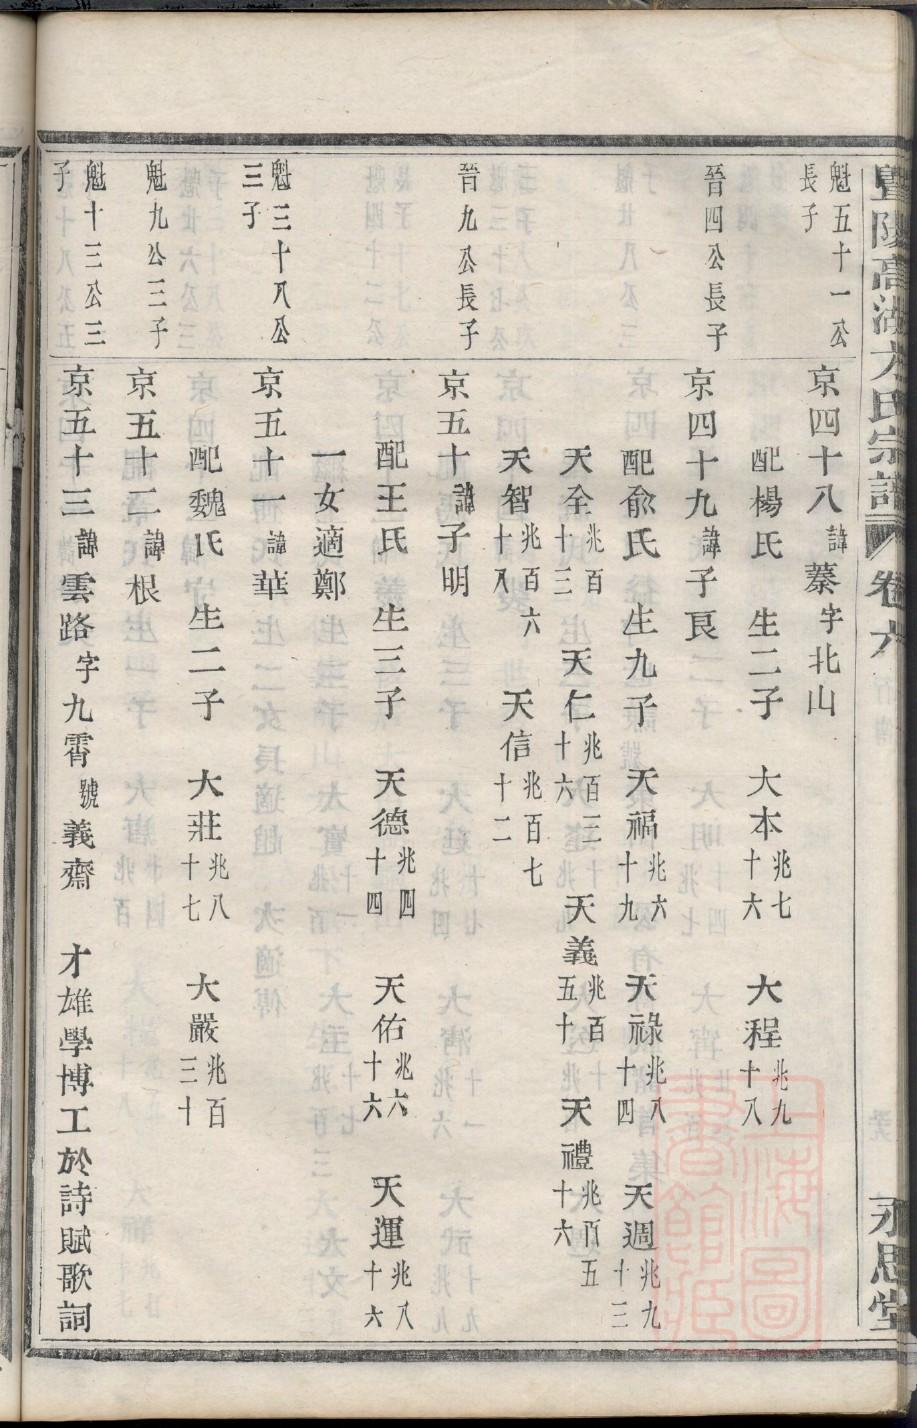 暨陽高湖方氏宗譜 卷六 永思堂
魁五十一公長子
京四十八 諱蓁字北山
配楊氏 生二子 大本兆七十六 大程兆九十八
晉四公長子
京四十九 諱子良
配俞氏 生九子 天福兆六十九 天祿兆八十四 天週兆九十三
天全兆百十三 天仁兆百三十六 天義兆百五十 天禮兆百五十六
天智兆百六十八 天信兆百七十二
晉九公長子
京五十 諱子明
配王氏 生三子 天德兆四十四 天佑兆六十六 天運兆八十六
一女適鄭
魁三十八公三子
京五十一 諱華
配魏氏 生二子 大莊兆八十七 大嚴兆百三十
魁九公三子
京五十二 諱根
魁十三公三子
京五十三 諱雲路字九霄號義齋 才雄學博工於詩賦歌詞